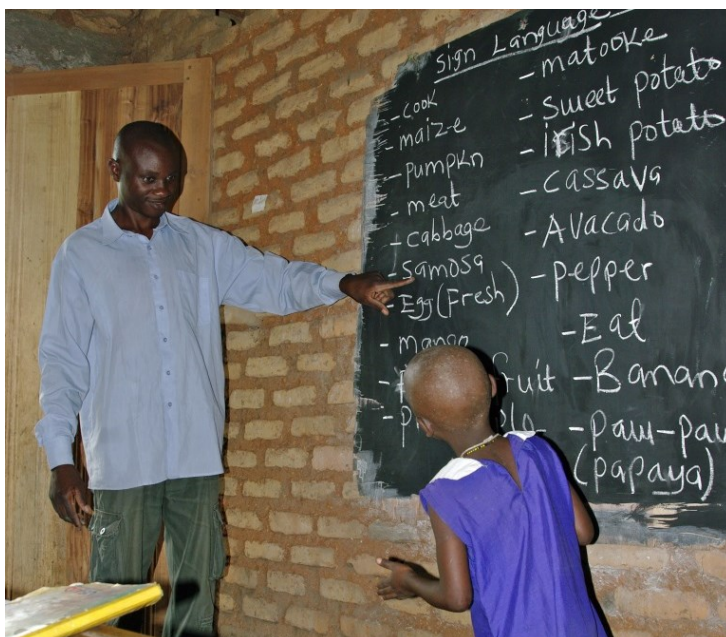 Sign Language
- cook
- maize
- pumpkn
- meat
- cabbage
- Samosa
- Egg (Fresh)
- mango
fruit
- matooke
- sweet potato
- irish potato
- cassava
- Avacado
- pepper
- Eat
- Banana
- paw-paw
(papaya)